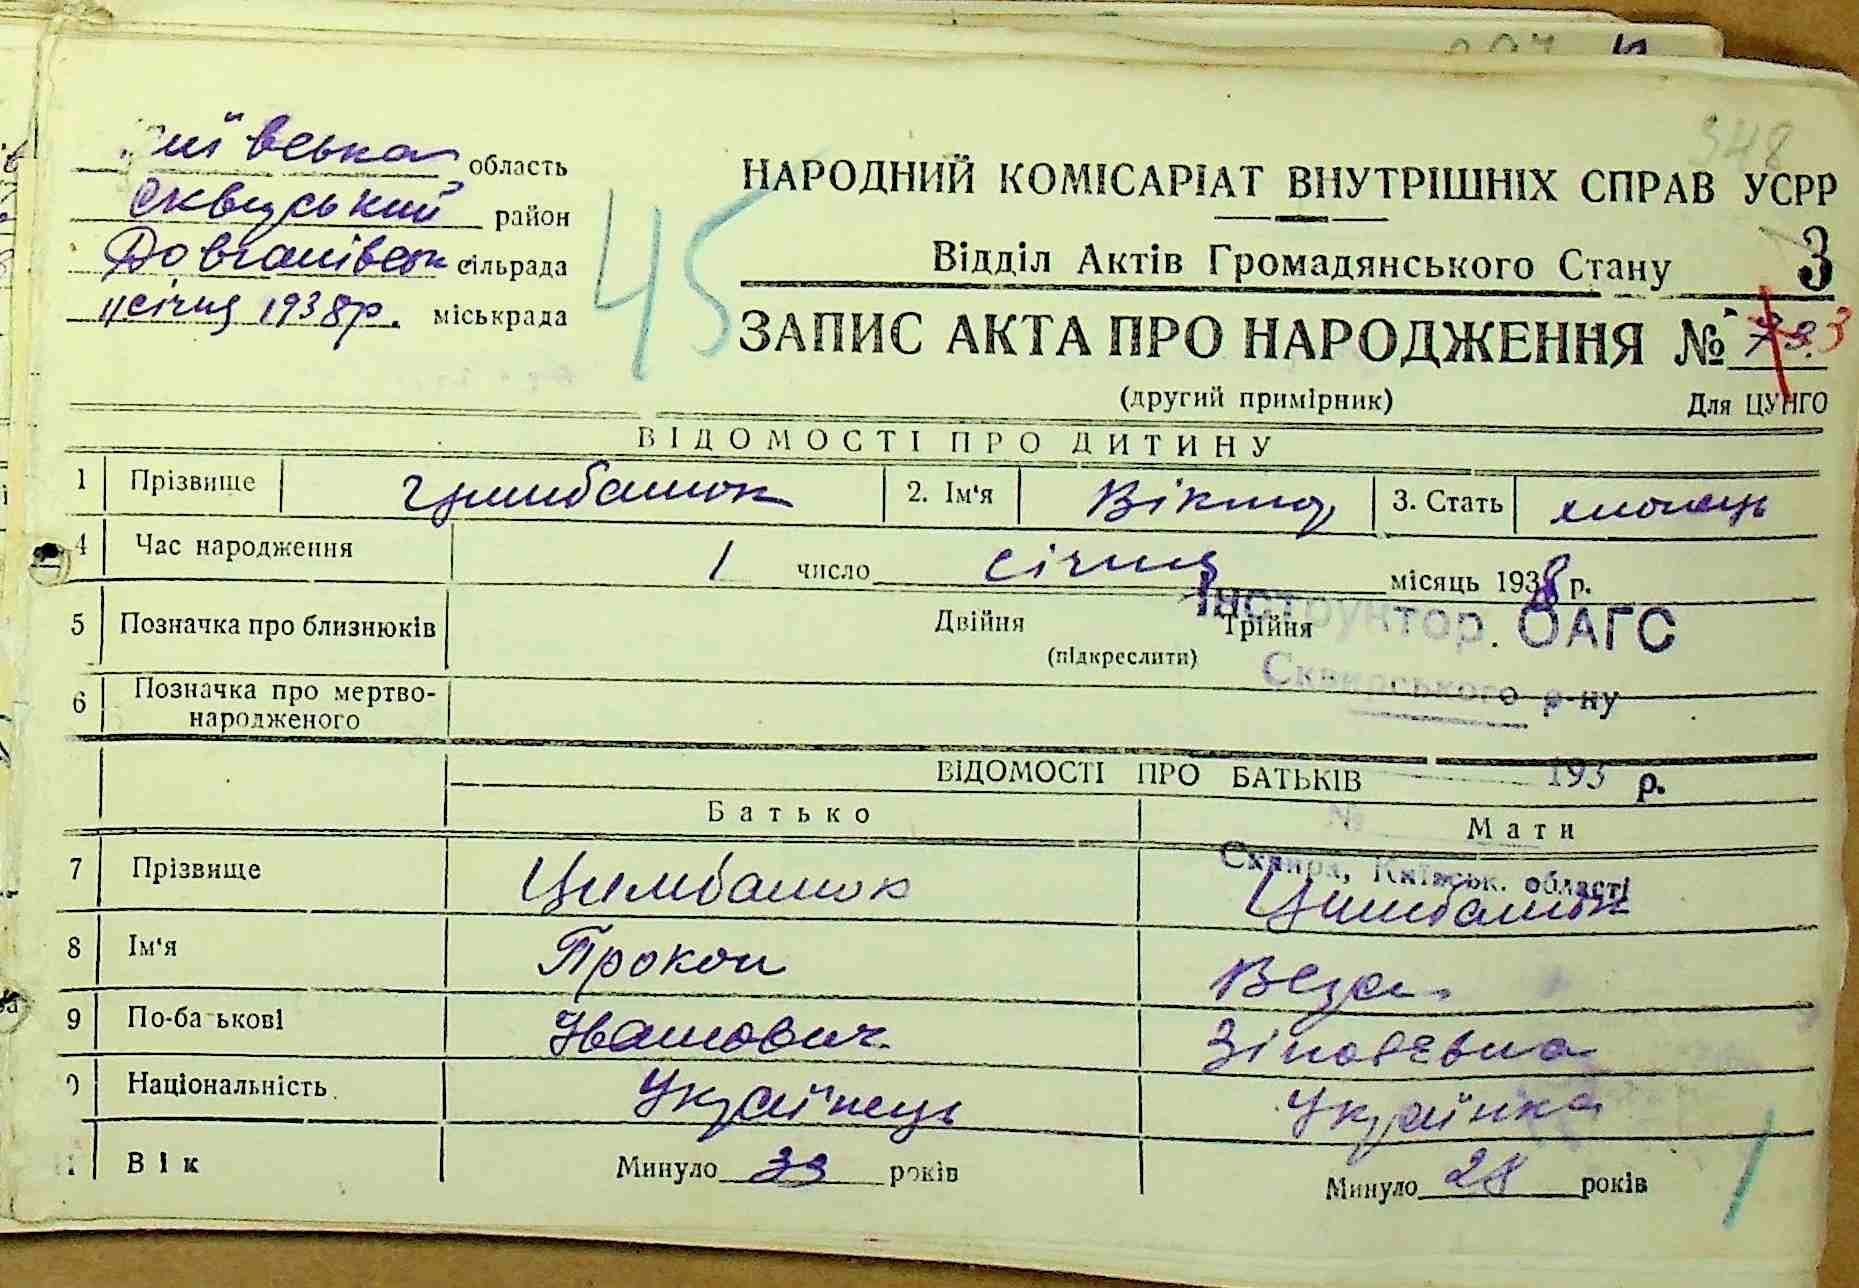 348
Київська область
Сквирський район
Довгалівськ сільрада
11 січня 1938 р. міськрада
45
НАРОДНИЙ КОМІСАРІАТ ВНУТРІШНІХ СПРАВ УСРР
Відділ Актів Громадянського Стану 3
ЗАПИС АКТА ПРО НАРОДЖЕННЯ № 3
(другий примірник) Для ЦУНГО
ВІДОМОСТІ ПРО ДИТИНУ
1 Прізвище Цимбалюк 2. Ім'я Віктор 3. Стать хлопець
4 Час народження 1 число січня місяць 1938 р.
Інструктор. ОАГС
5 Позначка про близнюків Двійня Трійня
(підкреслити)
Сквирського р-ну
6 Позначка про мертво-
народженого
ВІДОМОСТІ ПРО БАТЬКІВ
193 р.
Батько Мати
№
Сквира, Київськ. області
7 Прізвище Цимбалюк Цимбалюк
8 Ім'я Прокоп Вера
9 По-батькові Іванович Зіновевна
Національність Українець Українка
Вік Минуло 33 років Минуло 28 років